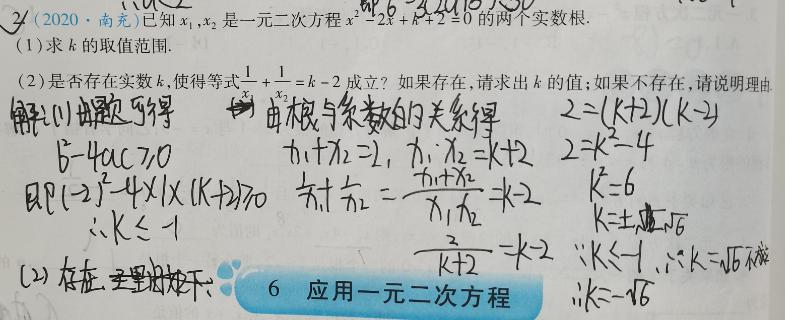 2. (2020·南充)已知 x₁,x₂ 是一元二次方程 x²-2x+k+2=0 的两个实数根.
(1)求 k 的取值范围.
(2)是否存在实数 k,使得等式 1/x₁ + 1/x₂ = k-2 成立? 如果存在,请求出 k 的值;如果不存在,请说明理由.
解:(1)由题可得
b²-4ac≥0
即(-2)²-4×1×(k+2)≥0
∴k≤-1
(2)存在
由根与系数的关系得
x₁+x₂=2, x₁·x₂=k+2
1/x₁+1/x₂ = (x₁+x₂)/(x₁x₂) =k-2
2/(k+2) =k-2
2=(k+2)(k-2)
2=k²-4
k²=6
k=±√6
∵k≤-1, ∴k=√6
∴k=-√6
6 应用一元二次方程